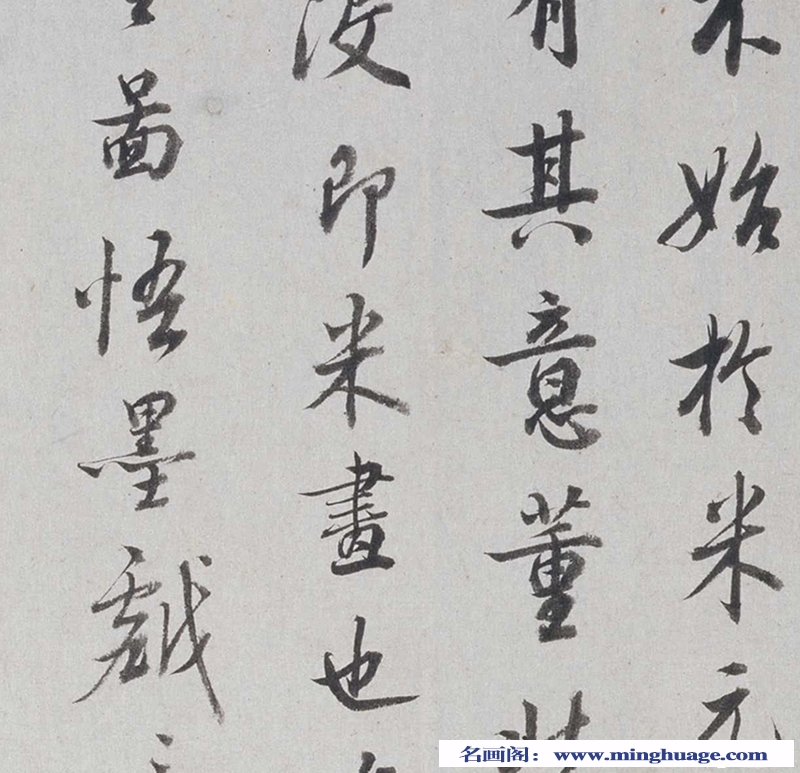 不始於米元
有其意董
沒即米畫也
圖悟墨戲
名画阁：www.minghuage.com